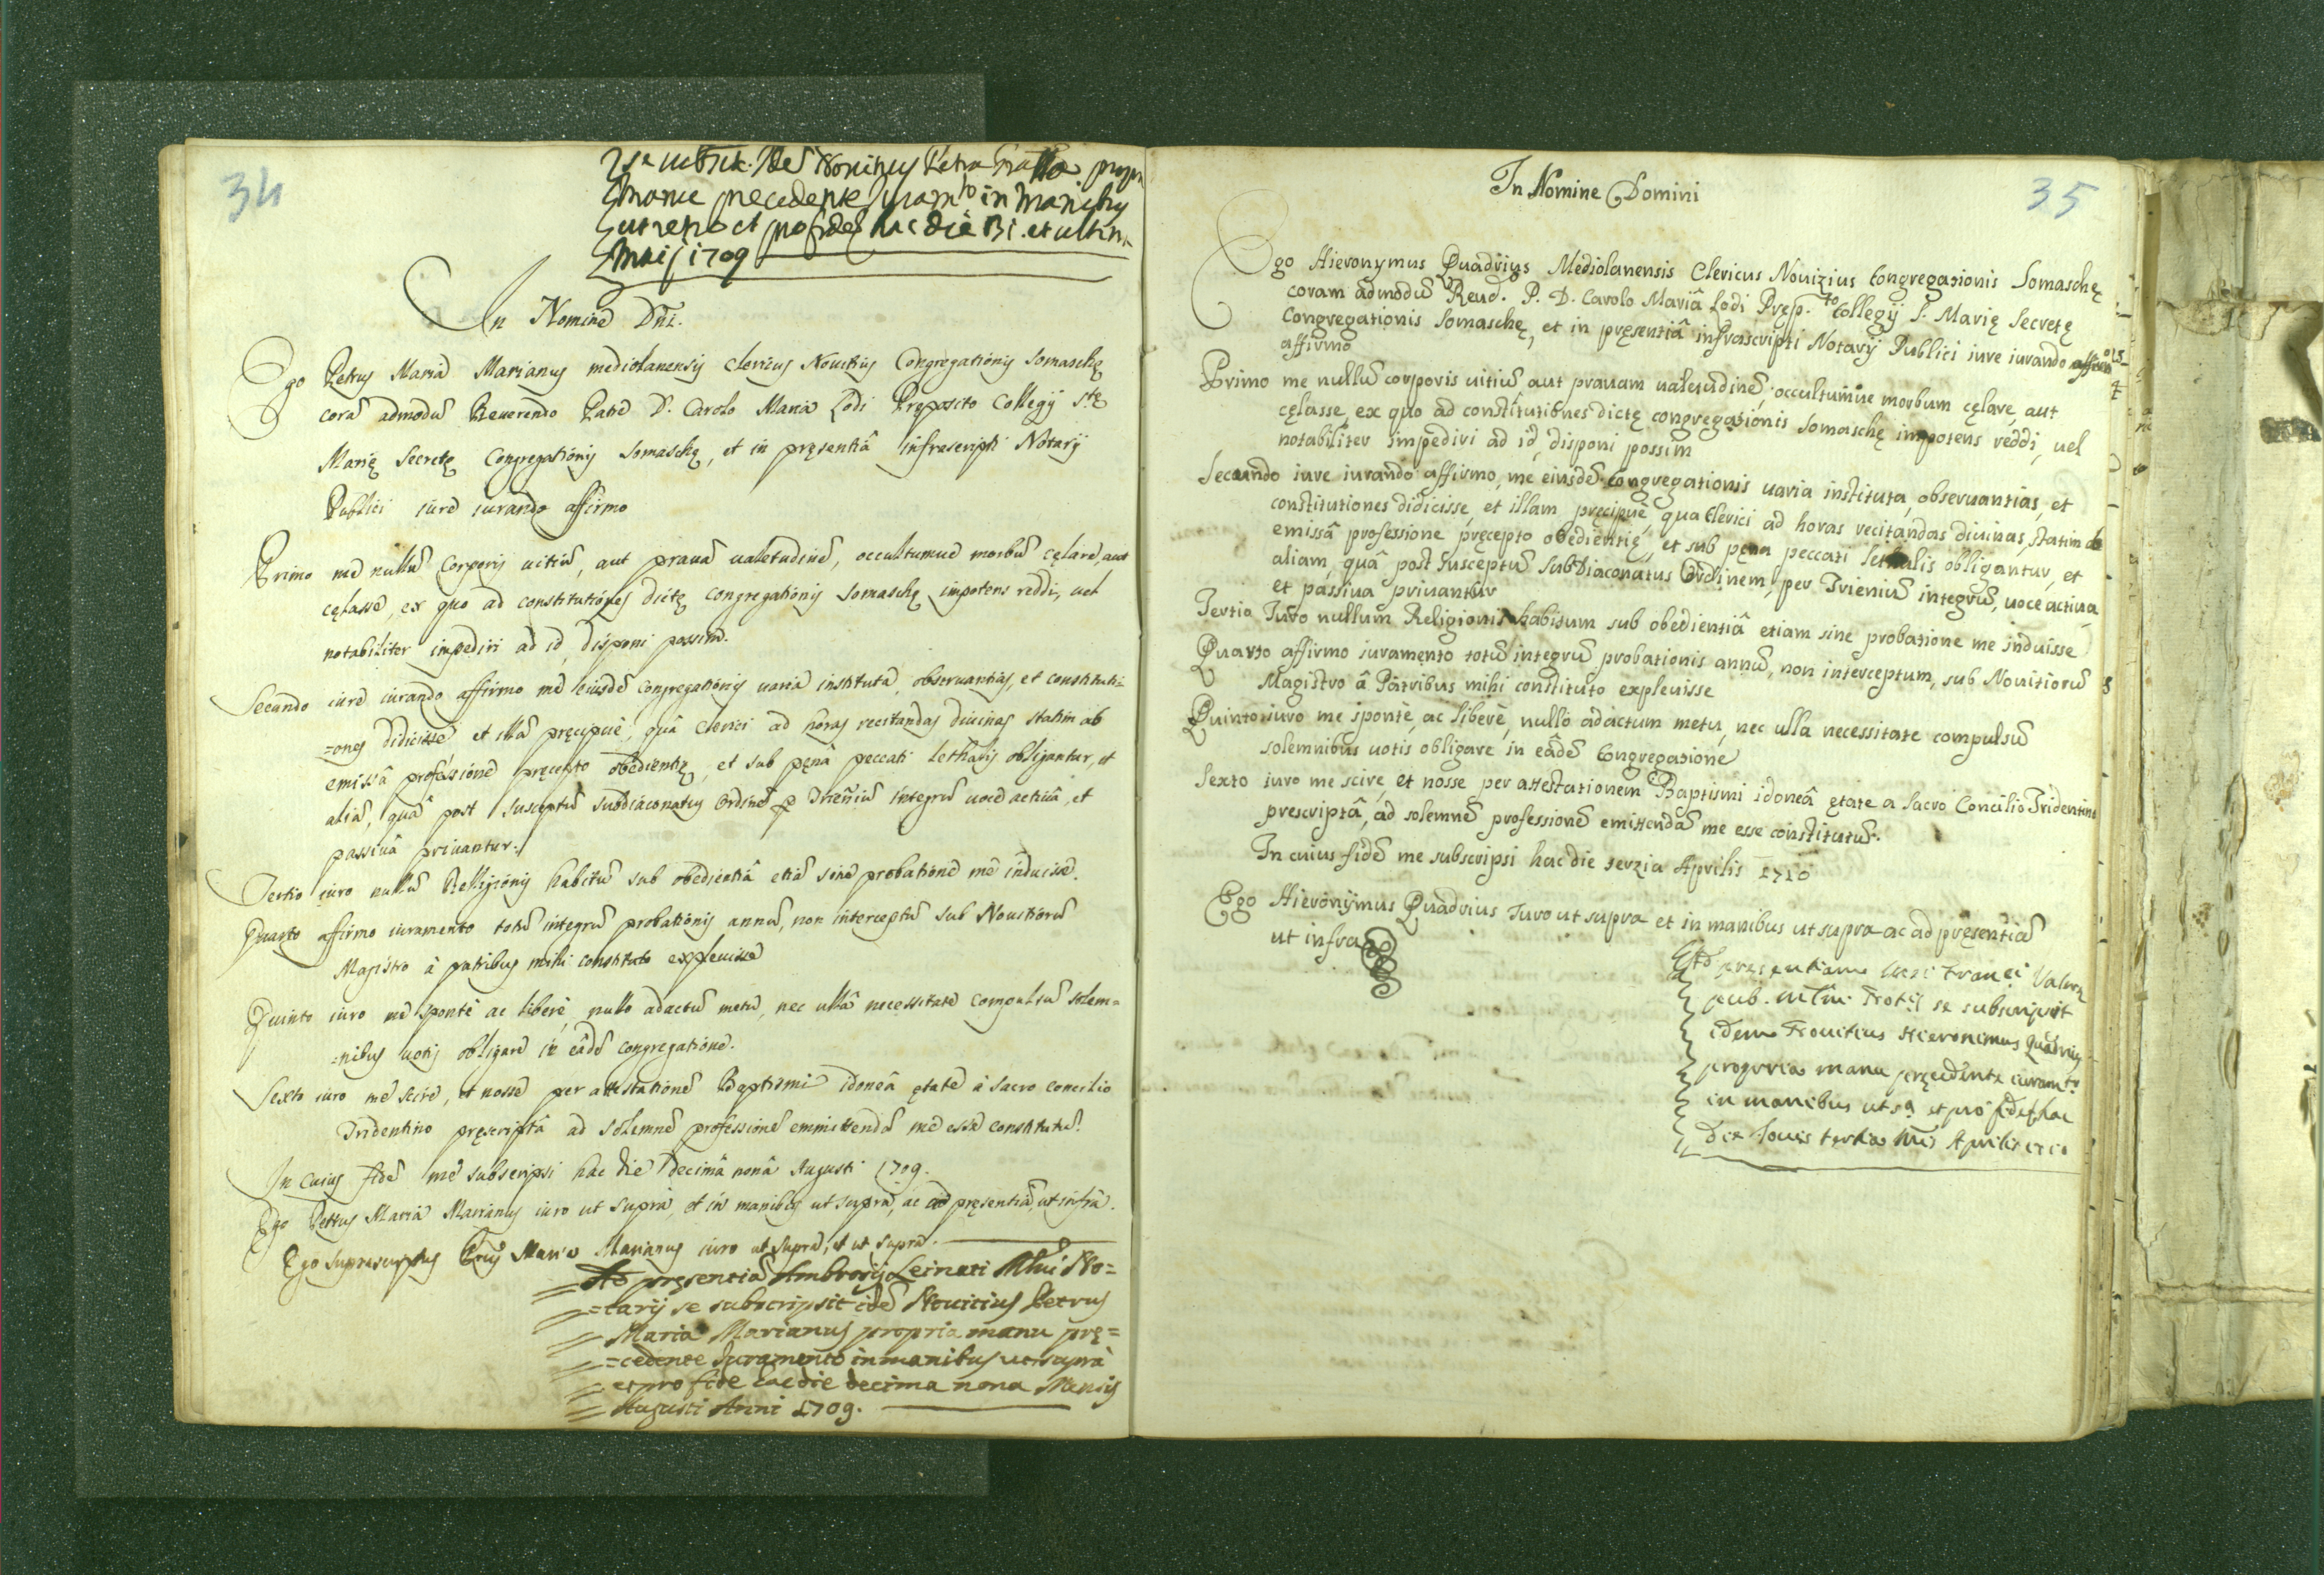 34
Novitius Petrus
manu precedente juram.to in manibus
ut retro et pro fide hac die 31. et ultima
Maij 1709
In Nomine Dñi.
Ego Petrus Maria Marianus mediolanensis Clericus Novitius Congregationis Somaschę
corã admodũ Reverendo Patre D. Carolo Maria Lodi Pręposito Collegij S.tę
Marię Secretę Congregationis Somaschę, et in pręsentiâ infrascripti Notarij
Publici iure iurando affirmo
Primo me nullũ Corporis uitiũ, aut prauã ualetudinẽ, occultumue morbũ cęlare, aut
cęlasse, ex quo ad constitutiones dictę congregationis Somaschę impotens reddi, uel
notabiliter impediri ad id disponi possim.
Secundo iure iurando affirmo me eiusdẽ Congregationis uaria instituta, obseruantias, et constituti=
=ones didicisse et illã pręcipuè, quâ Clerici ad horas recitandas diuinas statim ab
emissâ professione pręcepto obedientię, et sub pęnâ peccati lethalis obligantur, et
aliã, quâ post susceptũ subdiaconatus Ordinẽ p Trieñiũ integrũ uoce actiuâ, et
passiuâ priuantur.
Tertio iuro nullũ Relligionis habitũ sub obedientiâ etiã sine probatione me induisse.
Quarto affirmo iuramento totũ integrũ probationis annũ, non interceptũ sub Nouitiorũ
Magistro à patribus mihi constituto expleuisse
Quinto iuro me spontè ac liberè, nullo adactũ metu, nec ullâ necessitate compulsũ solem=
=nibus uotis obligare in eâdẽ congregatione.
Sexto iuro me scire, et nosse per attestationẽ Baptismi idoneâ ętate à sacro concilio
Tridentino pręscriptâ ad solemnẽ professionẽ emmittendã me esse constitutũ.
In cuius fidẽ me subscripsi hac die decimâ nonâ Augusti 1709.
Ego Petrus Maria Marianus iuro ut supra, et in manibus ut supra, ac ad pręsentiã, ut infra.
Ego suprascriptus Maria Marianus iuro ut supra, et ut supra.
Ad pręsentiã Ambrosij Leinati No=
=tarij se subscripsit idẽ Nouitius Petrus
Maria Marianus propria manu prę=
=cedente Iuramento in manibus ut supra
et pro fide hac die decima nona Mensis
Augusti Anni 1709.
35
In Nomine Domini
Ego Hieronymus Quadrius Mediolanensis Clericus Nouizius Congregationis Somaschę
coram admodũ Reud. P. D. Carolo Mariâ Lodi Pręp.to Collegij S. Marię Secretę
Congregationis Somaschę, et in pręsentiâ infrascripti Notarij Publici iure iurando
affirmo
Primo me nullũ corporis uitiũ aut prauam ualetudinẽ, occultumue morbum cęlare, aut
cęlasse, ex quo ad constitutiones dictę congregationis Somaschę impotens reddi, uel
notabiliter impediri ad id, disponi possim
Secundo iure iurando affirmo, me eiusdẽ Congregationis uaria instituta, obseruantias, et
constitutiones didicisse, et illam pręcipuè, qua Clerici ad horas recitandas diuinas, statim ab
emissâ professione pręcepto obedientię, et sub pęna peccati lethalis obligantur, et
aliam, quâ post susceptũ Subdiaconatus Ordinem, per Trieniũ integrũ, uoce actiua,
et passiua priuantur
Tertia Iuro nullum Religionis habitum sub obedientiâ etiam sine probatione me induisse
Quarto affirmo iuramento totũ integrũ probationis annũ, non interceptum, sub Nouitiorũ
Magistro â Patribus mihi constituto expleuisse
Quinto iuro me spontè, ac liberè, nullo adactum metu, nec ulla necessitate compulsũ
solemnibus uotis obligare in eâdẽ Congregatione
Sexto iuro me scire, et nosse per attestationem Baptismi idoneâ ętate a Sacro Concilio Tridentino
prescriptâ, ad solemnẽ professionẽ emittendã me esse constitutũ.
In cuius fidẽ me subscripsi hac die terzia Aprilis 1710
Ego Hieronijmus Quadrius Iuro ut supra et in manibus ut supra ac ad pręsentiã
ut infra
Ad presentiam mei
pub. se subscripsit
idem Nouitius Hieronimus Quadrius
propria manu pręcedente iuram.to
in manibus ut s.a et pro fide hac
die Iouis tertia Aprilis 1710